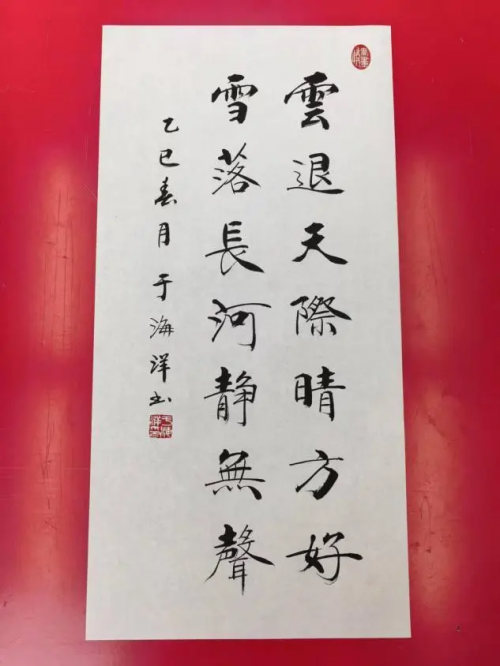 雲退天際晴方好
雪落長河静無聲
乙巳春月于海洋书